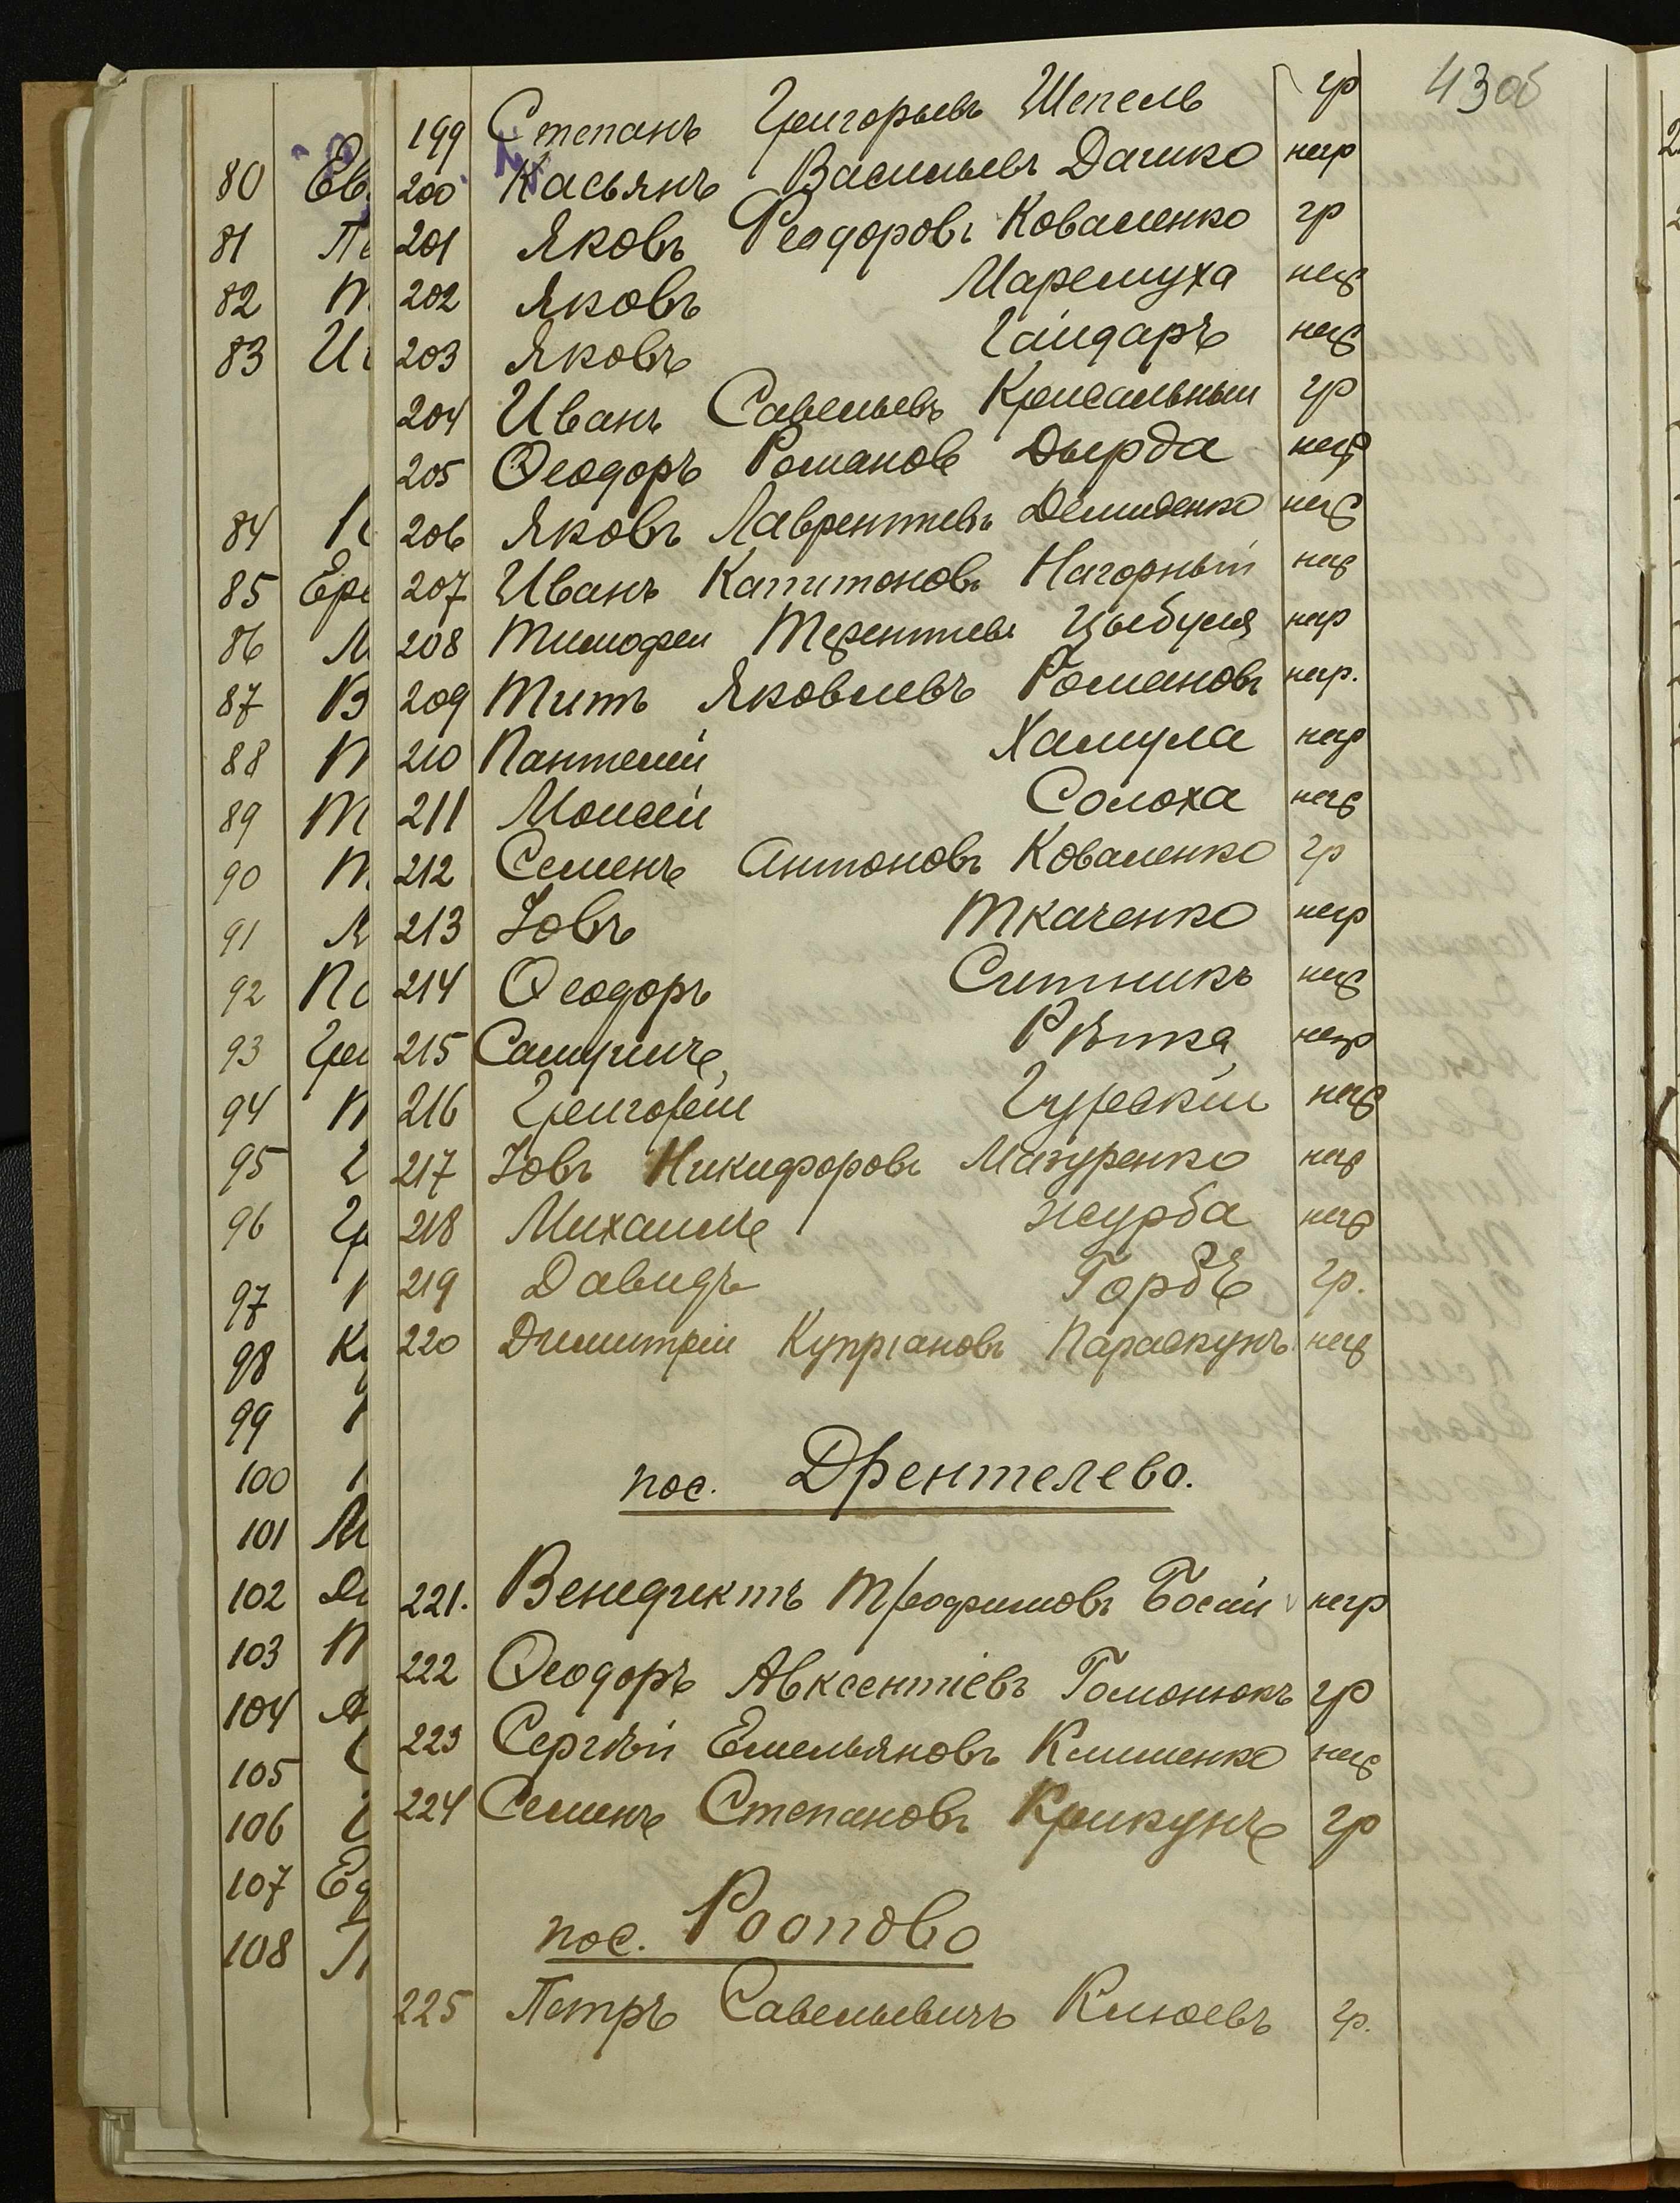 43 об
199 Степанъ Григорьевъ Шепель гр
200 Касьянъ Васильевъ Дашко негр
201 Яковъ Феодоровъ Коваленко гр
202 Яковъ Маремуха негр
203 Яковъ Гайдаръ негр
204 Иванъ Савельевъ Кресальный гр
205 Ѳеодоръ Романовъ Дырда негр
206 Яковъ Лаврентьевъ Демиденко негр
207 Иванъ Капитоновъ Нагорный негр
208 Тимофей Терентьевъ Цыбуля негр
209 Титъ Яковлевъ Романовъ негр.
210 Пантелей Хамула негр
211 Моисей Солоха негр
212 Семенъ Антоновъ Коваленко гр
213 Іовъ Ткаченко негр
214 Ѳеодоръ Ситникъ негр
215 Рѣпка негр
216 Григорій Гурскій негр
217 Іовъ Никифоровъ Мазуренко негр
218 Михаилъ Журба негр
219 Давидъ Горбъ гр.
220 Димитрій Купріановъ Параскунъ негр
пос. Дрентелево.
221. Венедиктъ Трофимовъ Босый негр
222 Ѳеодоръ Авксентіевъ Гомонюкъ гр
223 Сергѣй Емельяновъ Клименко негр
224 Семенъ Степановъ Крикунъ гр
пос. Роопово
225 Петръ Савельевичъ Клюевъ гр.
80 Ев
81
82
83
84
85 Ере
86
87 В
88
89
90
91
92
93 Гри
94
95
96
97
98
99
100
101
102
103
104
105
106
107
108